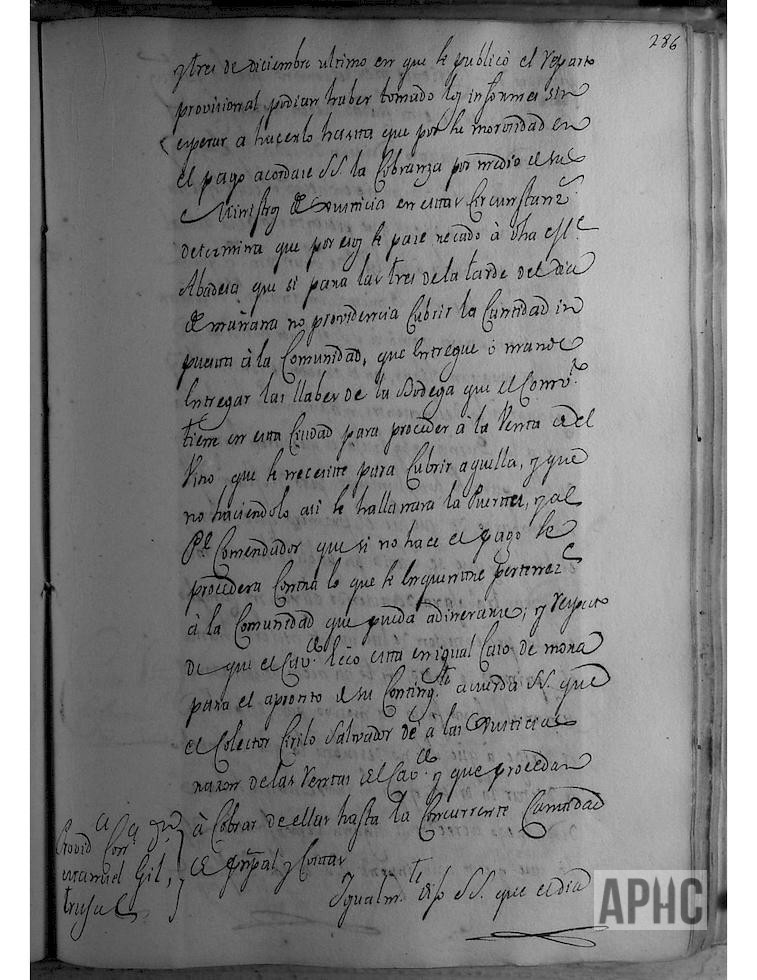 286
y tres de diciembre ultimo en que se publicó el reparto
provisional podian haber tomado los informes sin
esperar a hacerlo hasta que por su morosidad en
el pago acordase SS. la Cobranza por medio de sus
Ministros de Justicia en estas Circunstanz.s
determina que por esos se pase recado à dha
Abadesa que si para las tres de la tarde del dia
de mañana no providencia Cubrir la Cantidad im
puesta à la Comunidad, que entregue ò mande
entregar las llabes de la Bodega que el Comv.to
tiene en esta Ciudad para proceder à la Venta del
Vino que se necesite para Cubrir aquella, y que
no haciendolo asi se hallanara la Puerta, y al
P.e Comendador que si no hace el pago se
procedera Contra lo que se encuentre
à la Comunidad que pueda adinerarse; y respecto
de que el Cav.do està en igual Caso de mora
para el apronto de su Conting.te acuerda SS. que
el Colector Cirilo Salvador dé à las Justicias
razon de las Rentas del Cav.do y que procedan
à Cobrar de ellas hasta la Concurrente Cantidad
de prñpal y Costas
Provid.a Con.
Manuel Gil,
Igualm.te dijo SS. que el dia
APHC